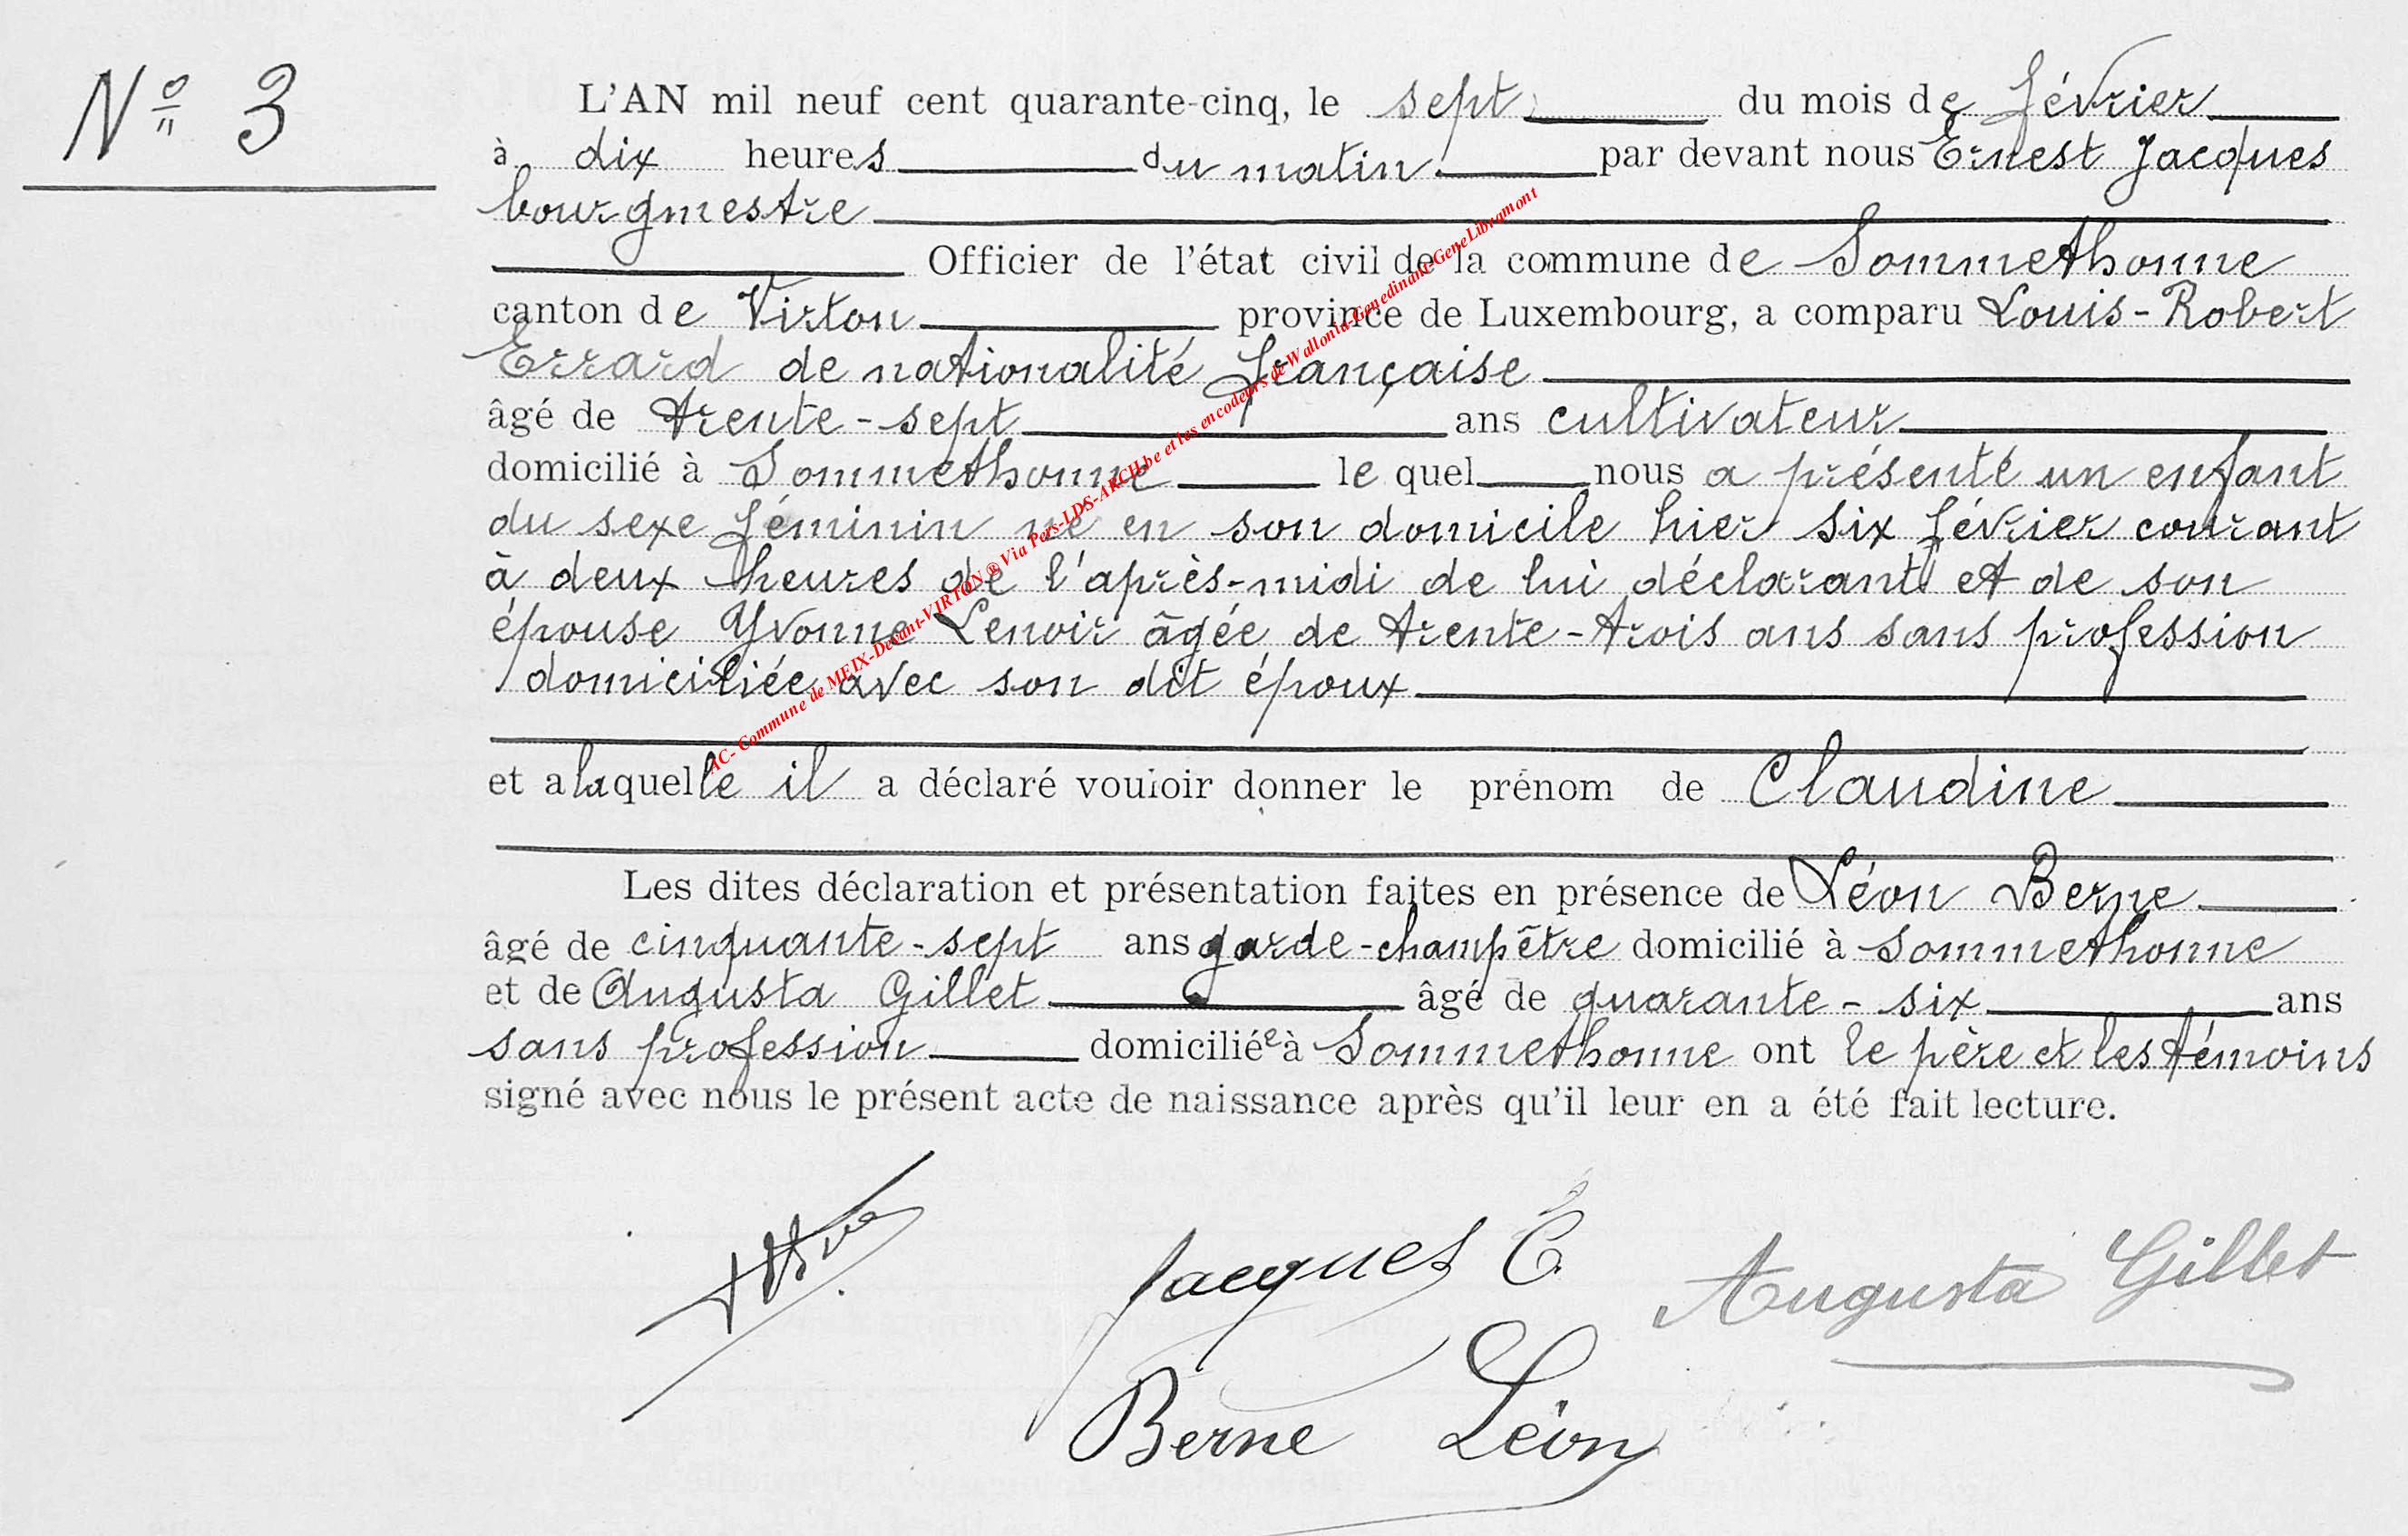 Nº 3
L'AN mil neuf cent quarante-cinq, le sept du mois de février
à dix heures du matin par devant nous Ernest Jacques
bourgmestre
Officier de l'état civil de la commune de Sommethonne
canton de Virton province de Luxembourg, a comparu Louis-Robert
Errard de nationalité française
âgé de trente-sept ans cultivateur
domicilié à Sommethonne le quel nous a présenté un enfant
du sexe féminin né en son domicile hier six février courant
à deux heures de l'après-midi de lui déclarant et de son
épouse Yvonne Lenoir âgée de trente-trois ans sans profession
domiciliée avec son dit époux
et a laquelle il a déclaré vouloir donner le prénom de Claudine
Les dites déclaration et présentation faites en présence de Léon Berne
âgé de cinquante-sept ans garde-champêtre domicilié à Sommethonne
et de Augusta Gillet âgé de quarante-six ans
sans profession domiciliée à Sommethonne ont le père et les témoins
signé avec nous le présent acte de naissance après qu'il leur en a été fait lecture.
Jacques E.
Augusta Gillet
Berne Léon
AC- Commune de MEIX-Devant-VIRTON ® Via Pers-LDS-ARCH.be et les encodeurs de Wallonia-Genedinant-GeneLibramont